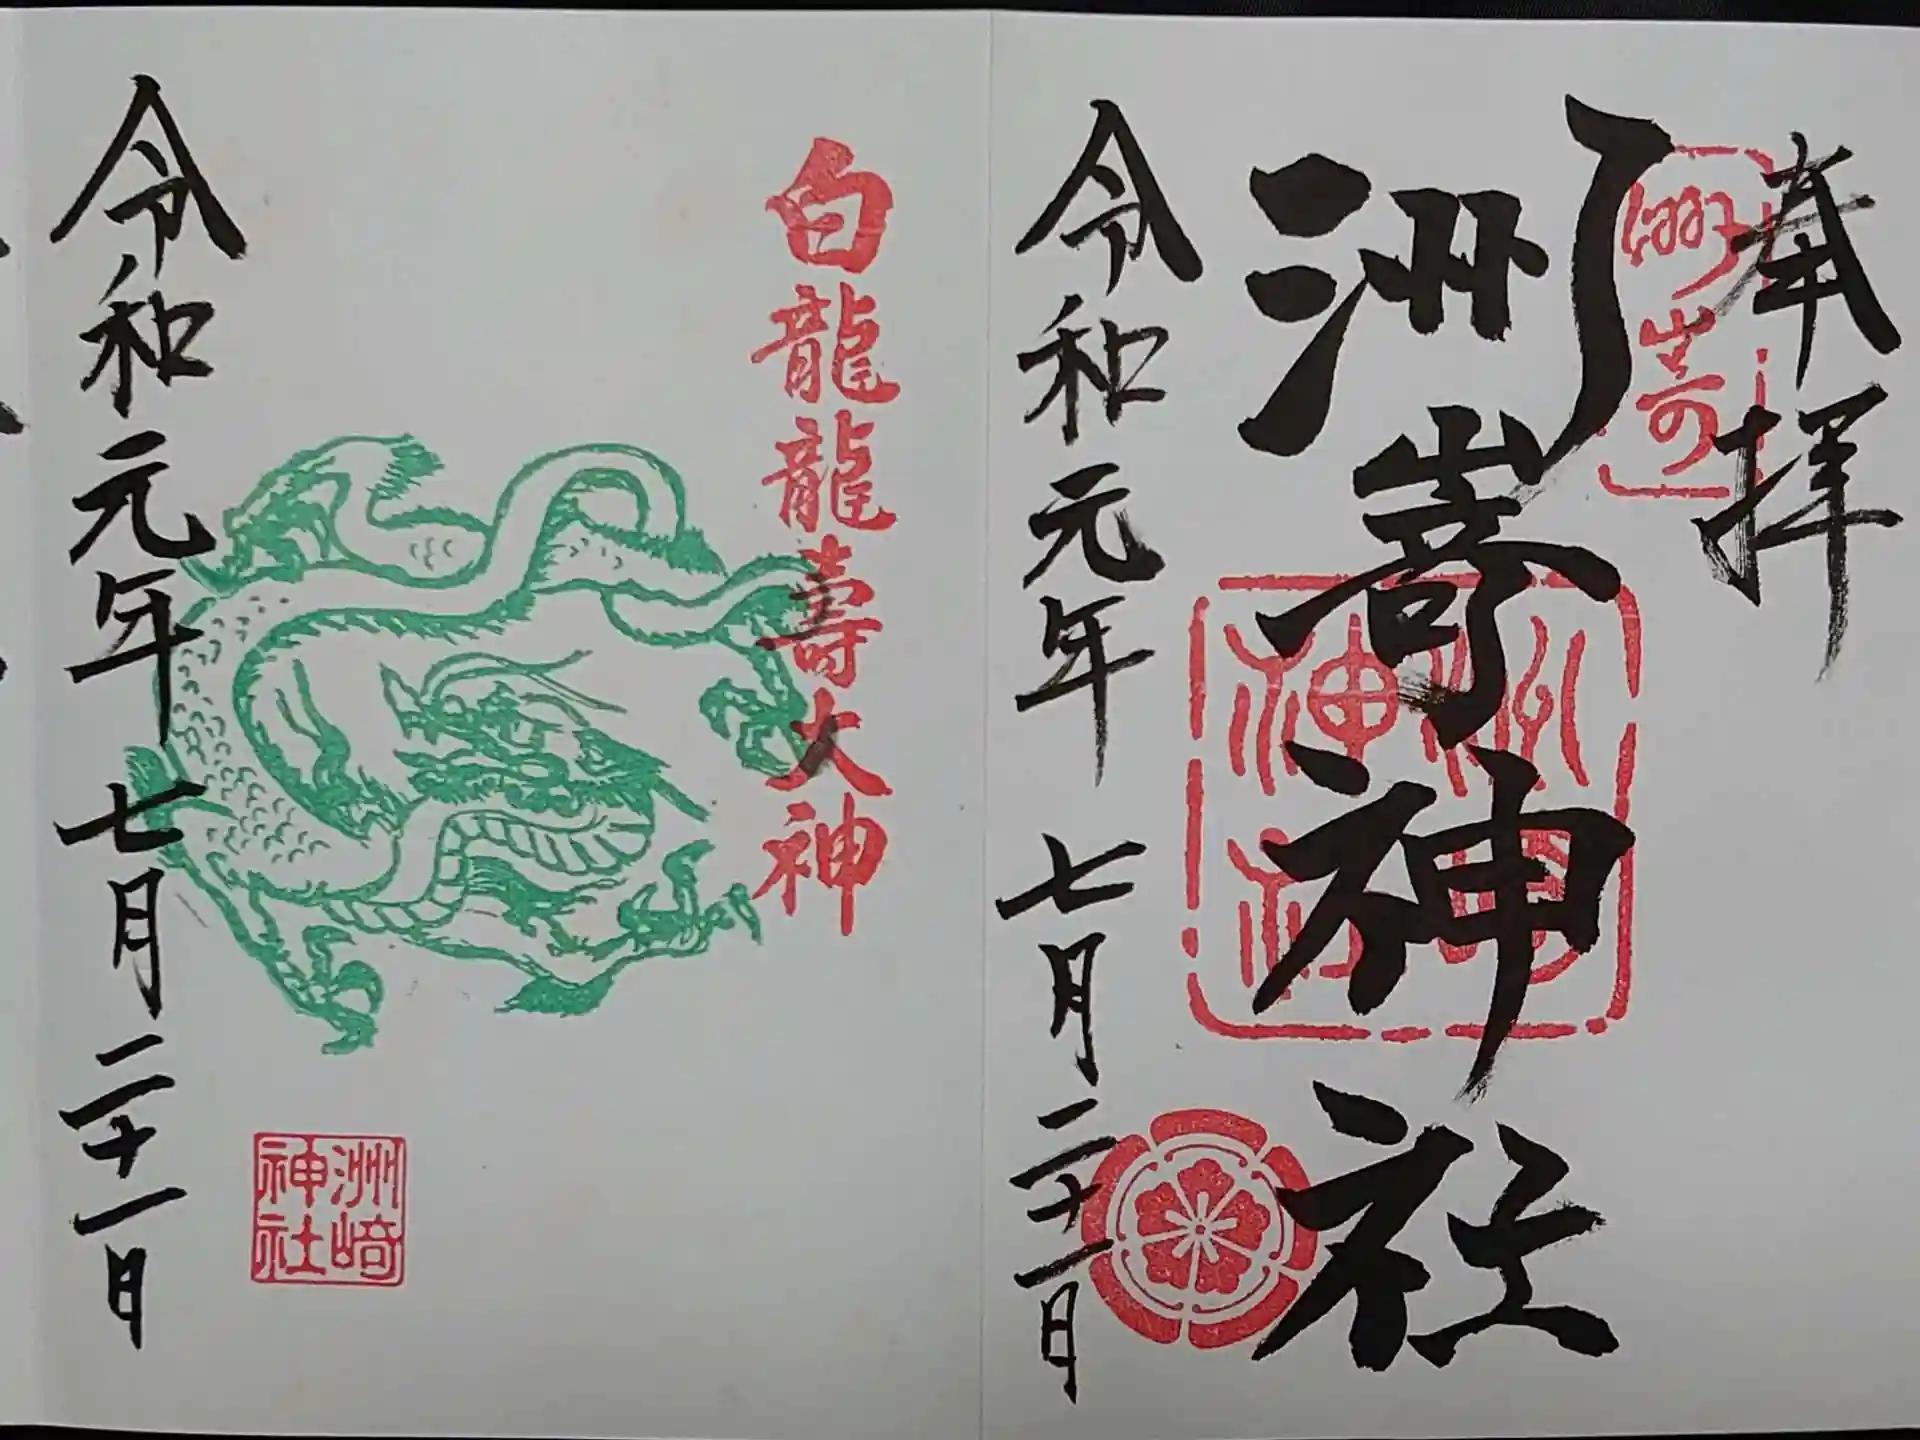 奉拝
洲嵜
洲嵜神社
令和元年 七月二十一日
白龍龍壽大神
洲崎
神社
令和元年 七月二十一日